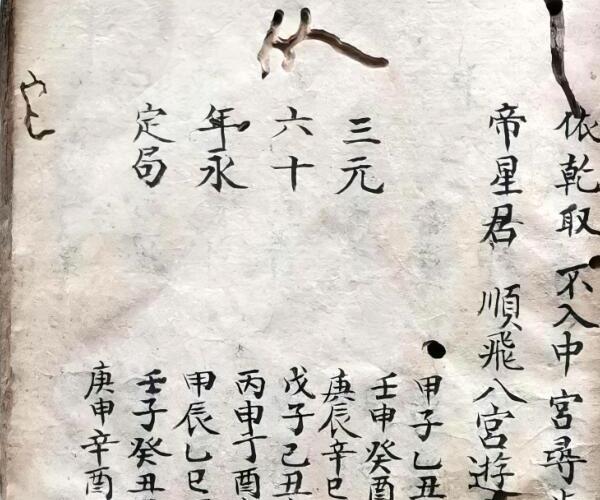 依乾取不入中宮尋
帝星君順飛八宮遊
三元
六十
年永
定局
甲子乙丑
壬申癸酉
庚辰辛巳
戊子己丑
丙申丁酉
甲辰乙巳
壬子癸丑
庚申辛酉